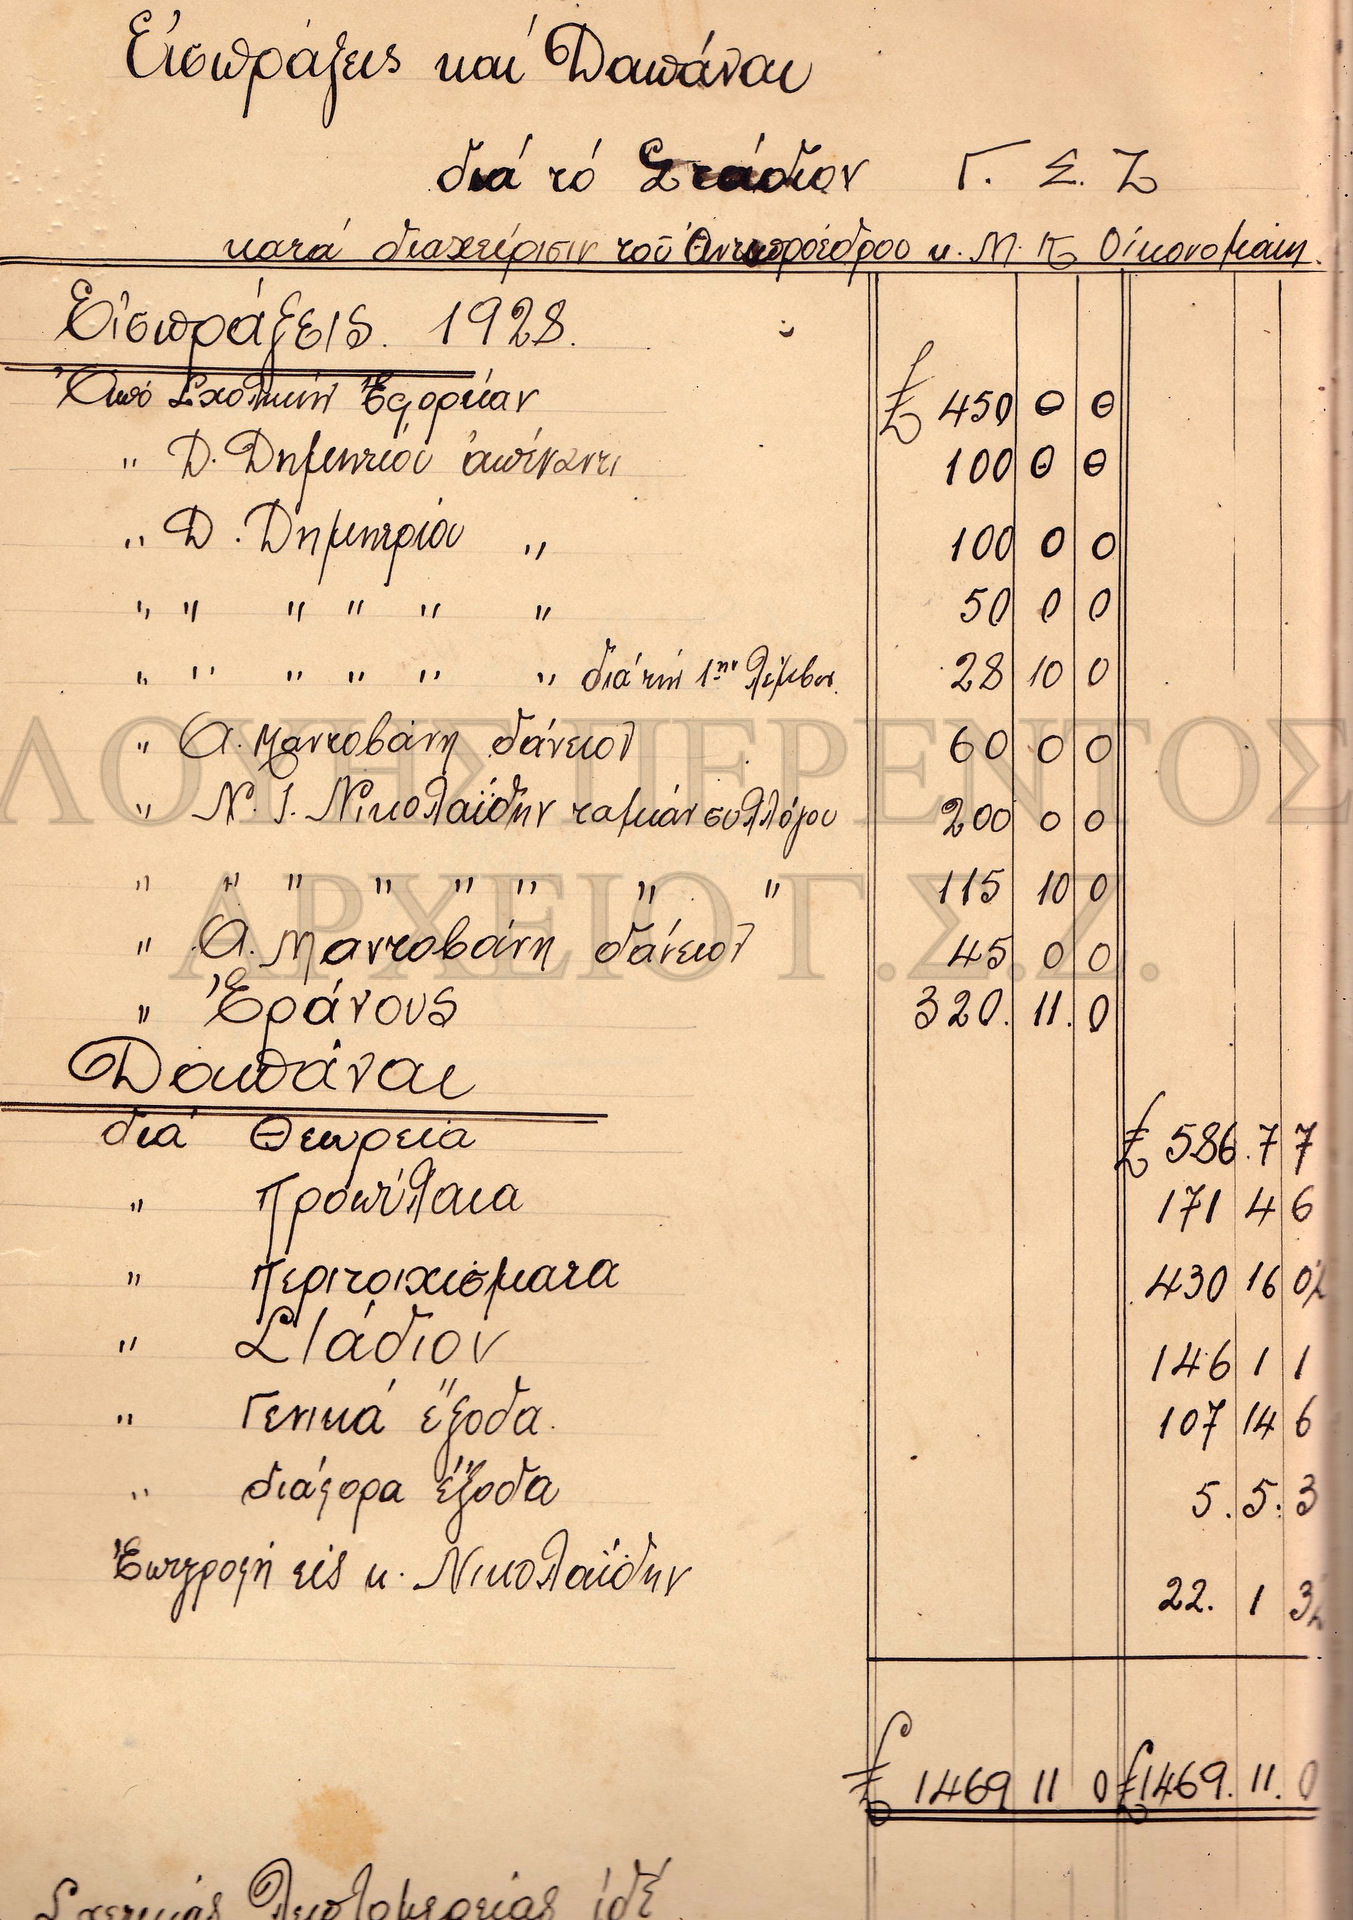 Εἰσπράξεις καί Δαπάναι
διά τό Στάδιον Γ. Σ. Ζ
κατά διαχείρισιν τοῦ Ἀντιπροέδρου κ. Μ. Π. Οἰκονομάκη.
Εἰσπράξεις. 1928.
Ἀπό Σχολικήν Ἐφορείαν £ 450 0 0
" Δ. Δημητρίου ἀπέναντι 100 0 0
" Δ. Δημητρίου " 100 0 0
" " " " " " 50 0 0
" " " " " " διά τήν 1ην 28 10 0
" Α. Μαντοβάνη δάνειον 60 0 0
" Ν. Ι. Νικολαΐδην ταμίαν συλλόγου 200 0 0
" " " " " " " " 115 10 0
" Α. Μαντοβάνη δάνειον 45 0 0
" Ἐράνους 320. 11. 0
Δαπάναι
διά Θεωρεία £ 586. 7 7
" Προπύλαια 171 4 6
" Περιτοιχίσματα 430 16 0½
" Στάδιον 146 1 1
" Γενικά ἔξοδα. 107 14 6
" διάφορα ἔξοδα 5. 5. 3
Ἐπιστροφή εἰς κ. Νικολαΐδην 22. 1 3½
£ 1469 11 0 £1469. 11. 0
Σχετικάς Λεπτομερείας ἰδέ
ΛΟΥΗΣ ΠΕΡΕΝΤΟΣ
ΑΡΧΕΙΟ Γ.Σ.Ζ.